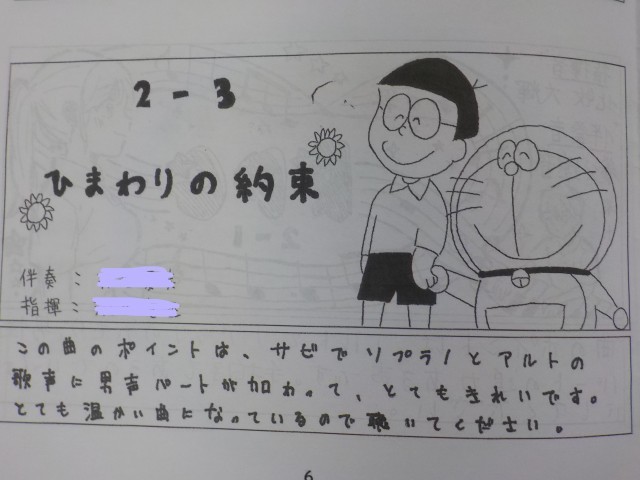 2-3
ひまわりの約束
伴奏:
指揮:
この曲のポイントは、サビでソプラノとアルトの
歌声に男声パートが加わって、とてもきれいです。
とても温かい曲になっているので聴いてください。
6